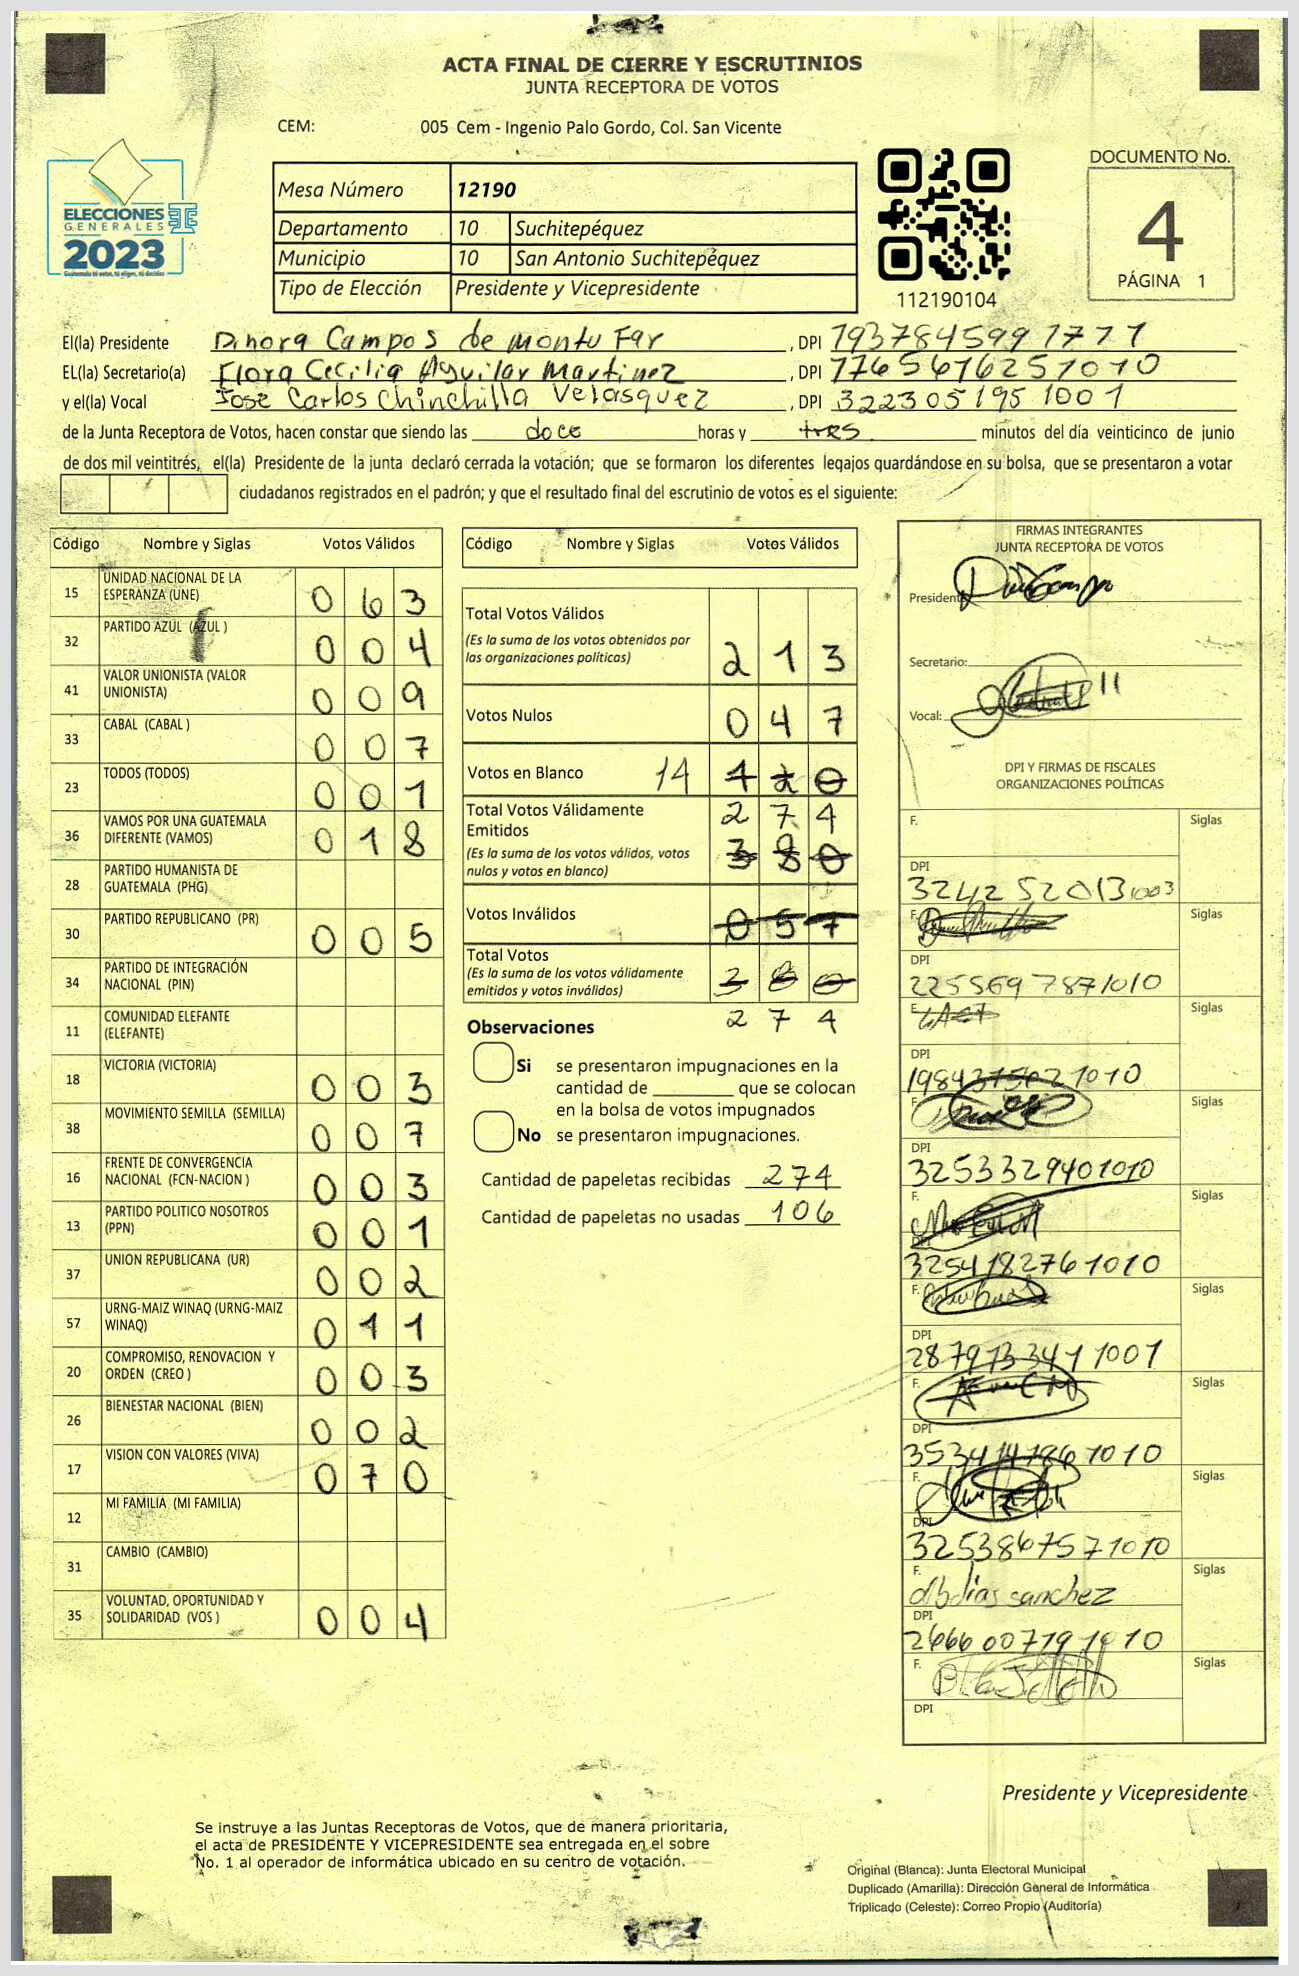 ACTA FINAL DE CIERRE Y ESCRUTINIOS
JUNTA RECEPTORA DE VOTOS
CEM: 005 Cem - Ingenio Palo Gordo, Col. San Vicente
ELECCIONES
GENERALES
2023
Guatemala tú votas, tú eliges, tú decides
Mesa Número 12190
Departamento 10 Suchitepéquez
Municipio 10 San Antonio Suchitepéquez
Tipo de Elección Presidente y Vicepresidente
112190104
DOCUMENTO No.
4
PÁGINA 1
El(la) Presidente Dinora Campos de Montufar, DPI 1937845991771
EL(la) Secretario(a) Flora Cecilia Aguilar Martinez, DPI 1765616251010
y el(la) Vocal José Carlos Chinchilla Velasquez, DPI 3223051951001
de la Junta Receptora de Votos, hacen constar que siendo las doce horas y tres minutos del día veinticinco de junio
de dos mil veintitrés, el(la) Presidente de la junta declaró cerrada la votación; que se formaron los diferentes legajos guardándose en su bolsa, que se presentaron a votar
ciudadanos registrados en el padrón; y que el resultado final del escrutinio de votos es el siguiente:
Código Nombre y Siglas Votos Válidos
15 UNIDAD NACIONAL DE LA ESPERANZA (UNE) 0 6 3
32 PARTIDO AZUL (AZUL ) 0 0 4
41 VALOR UNIONISTA (VALOR UNIONISTA) 0 0 9
33 CABAL (CABAL ) 0 0 7
23 TODOS (TODOS) 0 0 1
36 VAMOS POR UNA GUATEMALA DIFERENTE (VAMOS) 0 1 8
28 PARTIDO HUMANISTA DE GUATEMALA (PHG)
30 PARTIDO REPUBLICANO (PR) 0 0 5
34 PARTIDO DE INTEGRACIÓN NACIONAL (PIN)
11 COMUNIDAD ELEFANTE (ELEFANTE)
18 VICTORIA (VICTORIA) 0 0 3
38 MOVIMIENTO SEMILLA (SEMILLA) 0 0 7
16 FRENTE DE CONVERGENCIA NACIONAL (FCN-NACION ) 0 0 3
13 PARTIDO POLITICO NOSOTROS (PPN) 0 0 1
37 UNION REPUBLICANA (UR) 0 0 2
57 URNG-MAIZ WINAQ (URNG-MAIZ WINAQ) 0 1 1
20 COMPROMISO, RENOVACION Y ORDEN (CREO ) 0 0 3
26 BIENESTAR NACIONAL (BIEN) 0 0 2
17 VISION CON VALORES (VIVA) 0 7 0
12 MI FAMILIA (MI FAMILIA)
31 CAMBIO (CAMBIO)
35 VOLUNTAD, OPORTUNIDAD Y SOLIDARIDAD (VOS ) 0 0 4
Código Nombre y Siglas Votos Válidos
Total Votos Válidos
(Es la suma de los votos obtenidos por
las organizaciones políticas) 2 1 3
Votos Nulos 0 4 7
Votos en Blanco 14 1 2 0
Total Votos Válidamente 2 7 4
Emitidos
(Es la suma de los votos válidos, votos 3 8 0
nulos y votos en blanco)
Votos Inválidos 0 5 7
Total Votos
(Es la suma de los votos válidamente 3 8 0
emitidos y votos inválidos)
2 7 4
Observaciones
Si se presentaron impugnaciones en la
cantidad de ________ que se colocan
en la bolsa de votos impugnados
No se presentaron impugnaciones.
Cantidad de papeletas recibidas 274
Cantidad de papeletas no usadas 106
FIRMAS INTEGRANTES
JUNTA RECEPTORA DE VOTOS
Presidente:
Secretario:
Vocal:
DPI Y FIRMAS DE FISCALES
ORGANIZACIONES POLÍTICAS
F. Siglas
DPI
3242 52013 1003
F. Siglas
DPI
225569 7871010
F. Siglas
DPI
F. Siglas
DPI
3253329401010
F. Siglas
DPI
3254182761010
F. Siglas
DPI
2879133411001
F. Siglas
DPI
3534147861010
F. Siglas
DPI
3253867571010
F. Siglas
Abdias sanchez
DPI
2666007191010
F. Siglas
DPI
Presidente y Vicepresidente
Se instruye a las Juntas Receptoras de Votos, que de manera prioritaria,
el acta de PRESIDENTE Y VICEPRESIDENTE sea entregada en el sobre
No. 1 al operador de informática ubicado en su centro de votación.
Original (Blanca): Junta Electoral Municipal
Duplicado (Amarilla): Dirección General de Informática
Triplicado (Celeste): Correo Propio (Auditoría)